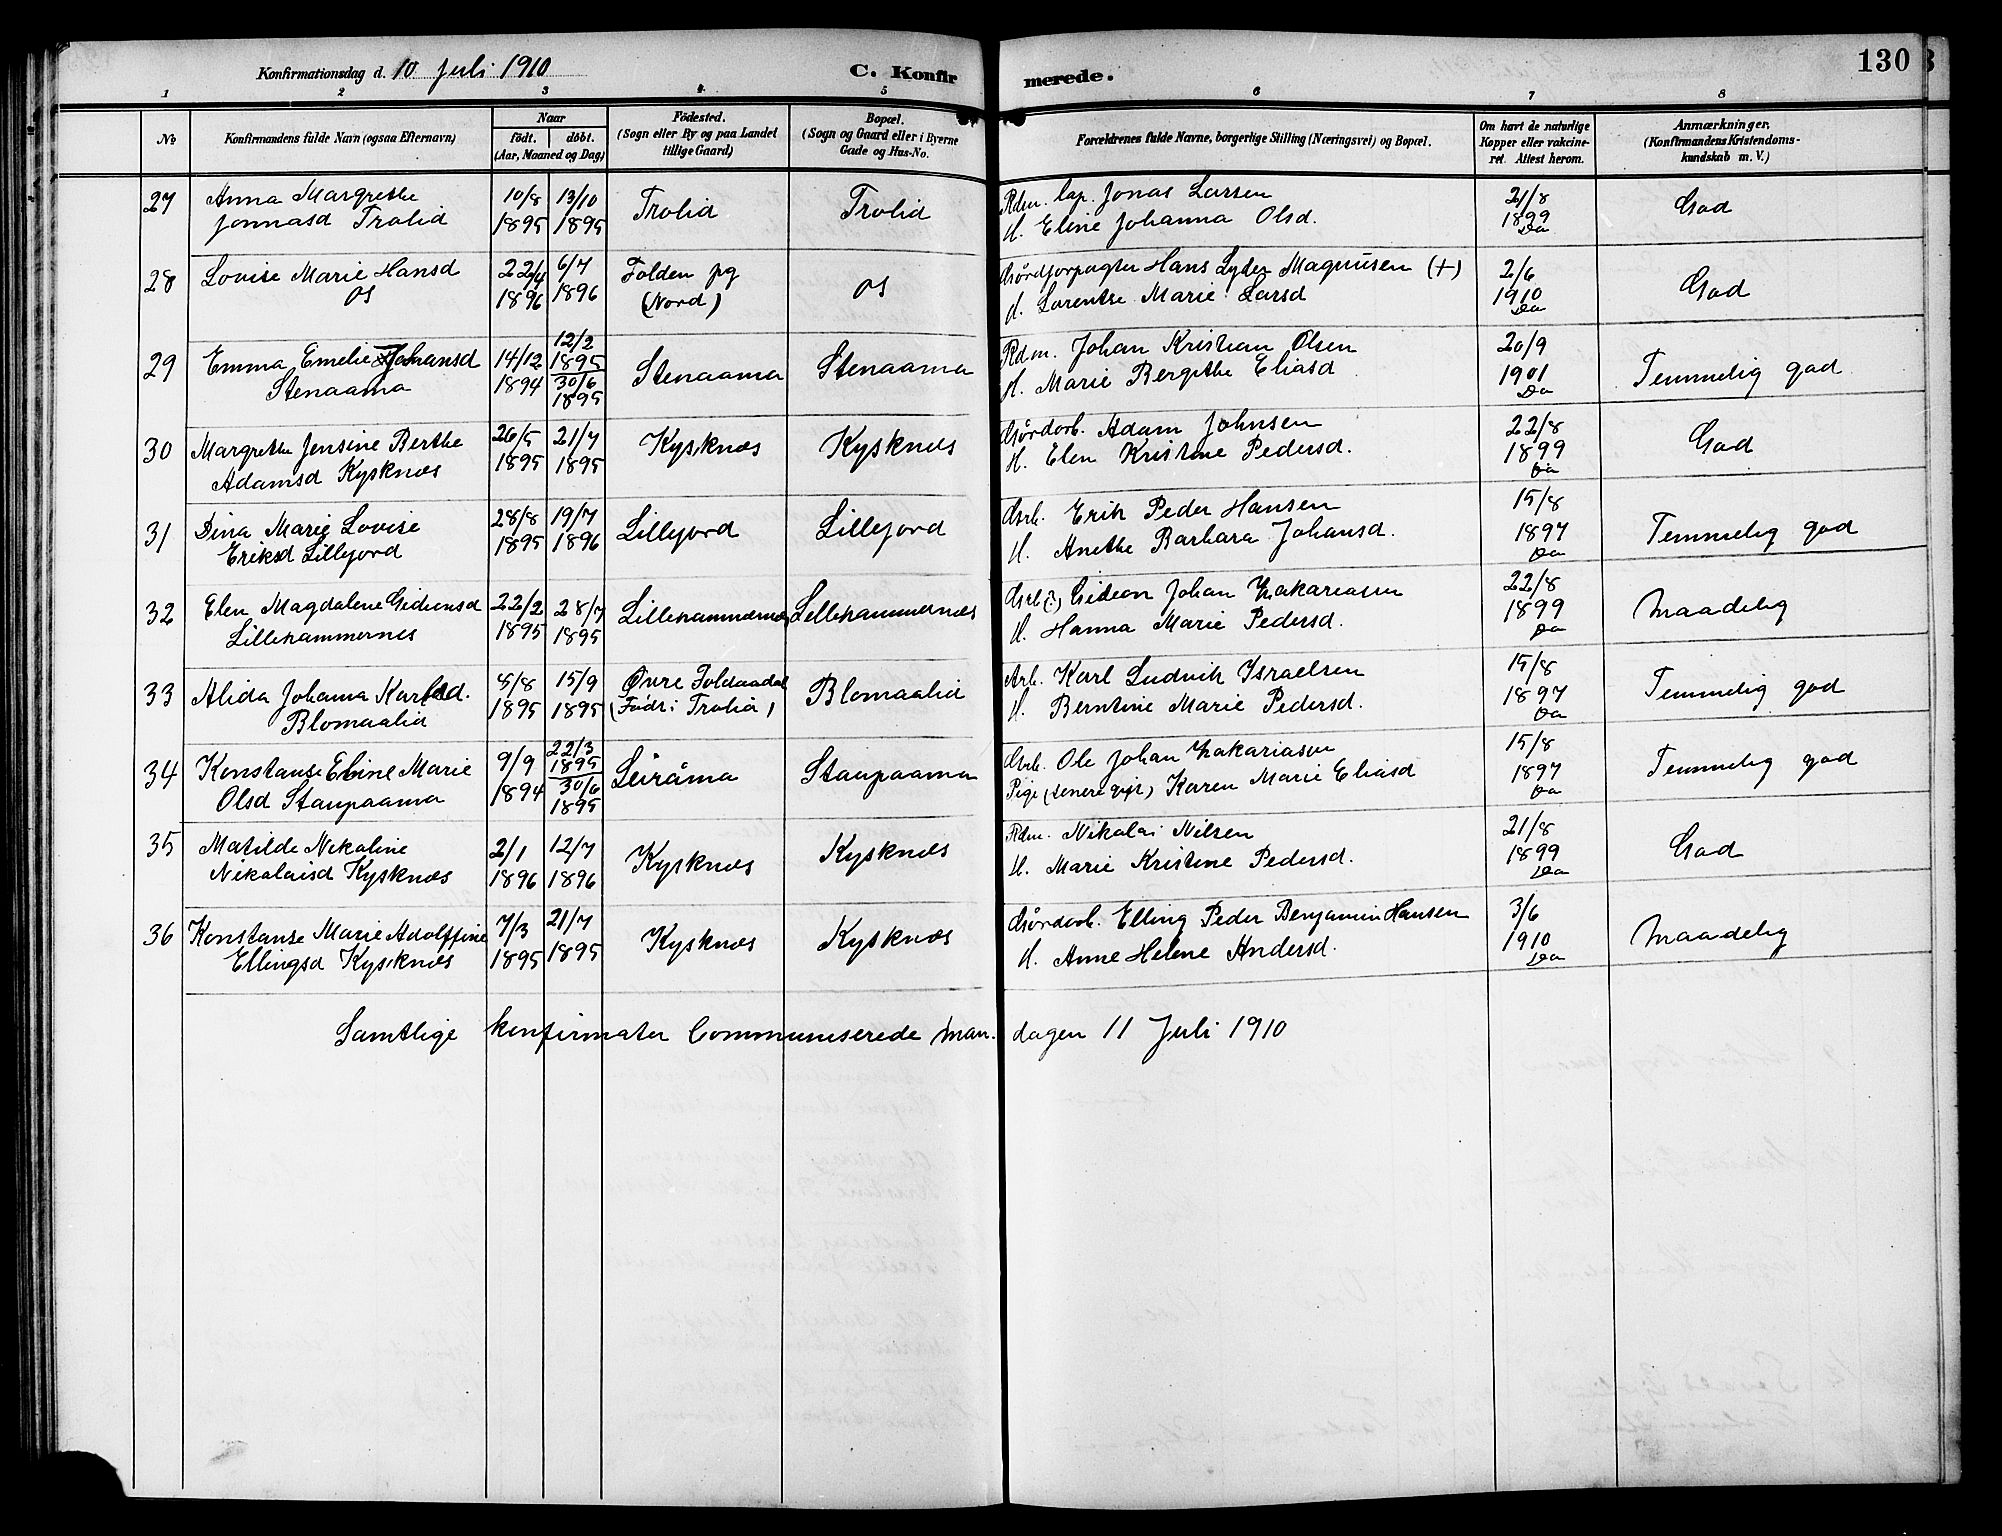 Konfirmationsdag d. 10 Juli 1910
C. Konfirmerede.
130
1 2 3 4 5 6 7 8
No
Konfirmandens fulde Navn (ogsaa Efternavn)
Naar
födt. döbt.
(Aar, Maaned og Dag)
Födested.
(Sogn eller By og paa Landet
tillige Gaard)
Bopæl.
(Sogn og Gaard eller i Byerne
Gade og Hus-No.
Forældrenes fulde Navne, borgerlige Stilling (Næringsvei) og Bopæl.
Om havt de naturlige
Kopper eller vakcine-
ret. Attest herom.
Anmærkninger.
(Konfirmandens Kristendoms-
kundskab m. V.)
27 Anna Margrethe 10/8 13/10 Trolid Trolid Rdm. lap. Jonas Larsen 21/8 God
Jonnasd Trolid 1895 1895 H. Eline Johanna Olsd. 1899
Da
28 Lovise Marie Hansd 22/4 6/7 Folden pg Os Gårdforpagter Hans Lyder Magnusen (+) 2/6 God
Os 1896 1896 (Nord) H. Lorentse Marie Larsd 1910
Da
29 Emma Emelie Johansd 14/12 12/2 1895 Stenaama Stenaama Rdm. Johan Kristian Olsen 20/9 Temmelig god
Stenaama 1894 30/6 1895 H. Marie Bergithe Eliasd 1901
Da
30 Margrethe Jensine Berthe 26/5 21/7 Kysknæs Kysknæs Gårdarb. Adam Johnsen 22/8 God
Adamsd Kysknæs 1895 1895 H. Elen Kristine Pedersd. 1899
Da
31 Dina Marie Lovise 28/8 19/7 Lillefjord Lillefjord Gsrb. Erik Peder Hansen 15/8 Temmelig god
Eriksd Lillefjord 1895 1896 H. Anethe Barbara Johansd. 1897
Da
32 Elen Magdalene Gideonsd 22/2 28/7 Lillehammernæs Lillehammernæs Gsrb(?) Gideon Johan Zakariasen 22/8 Maadelig
Lillehammernes 1895 1895 H. Hanna Marie Pedersd. 1899
Da
33 Alida Johanna Karlsd. 5/8 15/9 Øvre Foldaadal Blomaalid Arb. Karl Ludvik Israelsen 15/8 Temmelig god
Blomaalid 1895 1895 (Föd i Trolid) H. Berntine Marie Pedersd. 1897
Da
34 Konstanse Eline Marie 9/9 22/3 1895 Leiråma Staupaama Gsrb. Ole Johan Zakariasen 15/8 Temmelig god
Olsd Staupaama 1894 30/6 1895 Pige (senere gift) Karen Marie Eliasd 1897
Da
35 Matilde Nikoline 2/1 12/7 Kysknæs Kysknæs Rdm. Nikolai Nilsen 21/8 God
Nikolaisd Kysknæs 1896 1896 H. Marie Kristine Pedersd. 1899
Da
36 Konstanse Marie Adolffine 7/3 21/7 Kysknæs Kysknæs Gårdarb. Elling Peder Benjamin Hansen 3/6 Maadelig
Ellingsd Kysknæs 1895 1895 H. Anne Helene Andersd. 1910
Da
Samtlige konfirmater Communiserede mandagen 11 Juli 1910